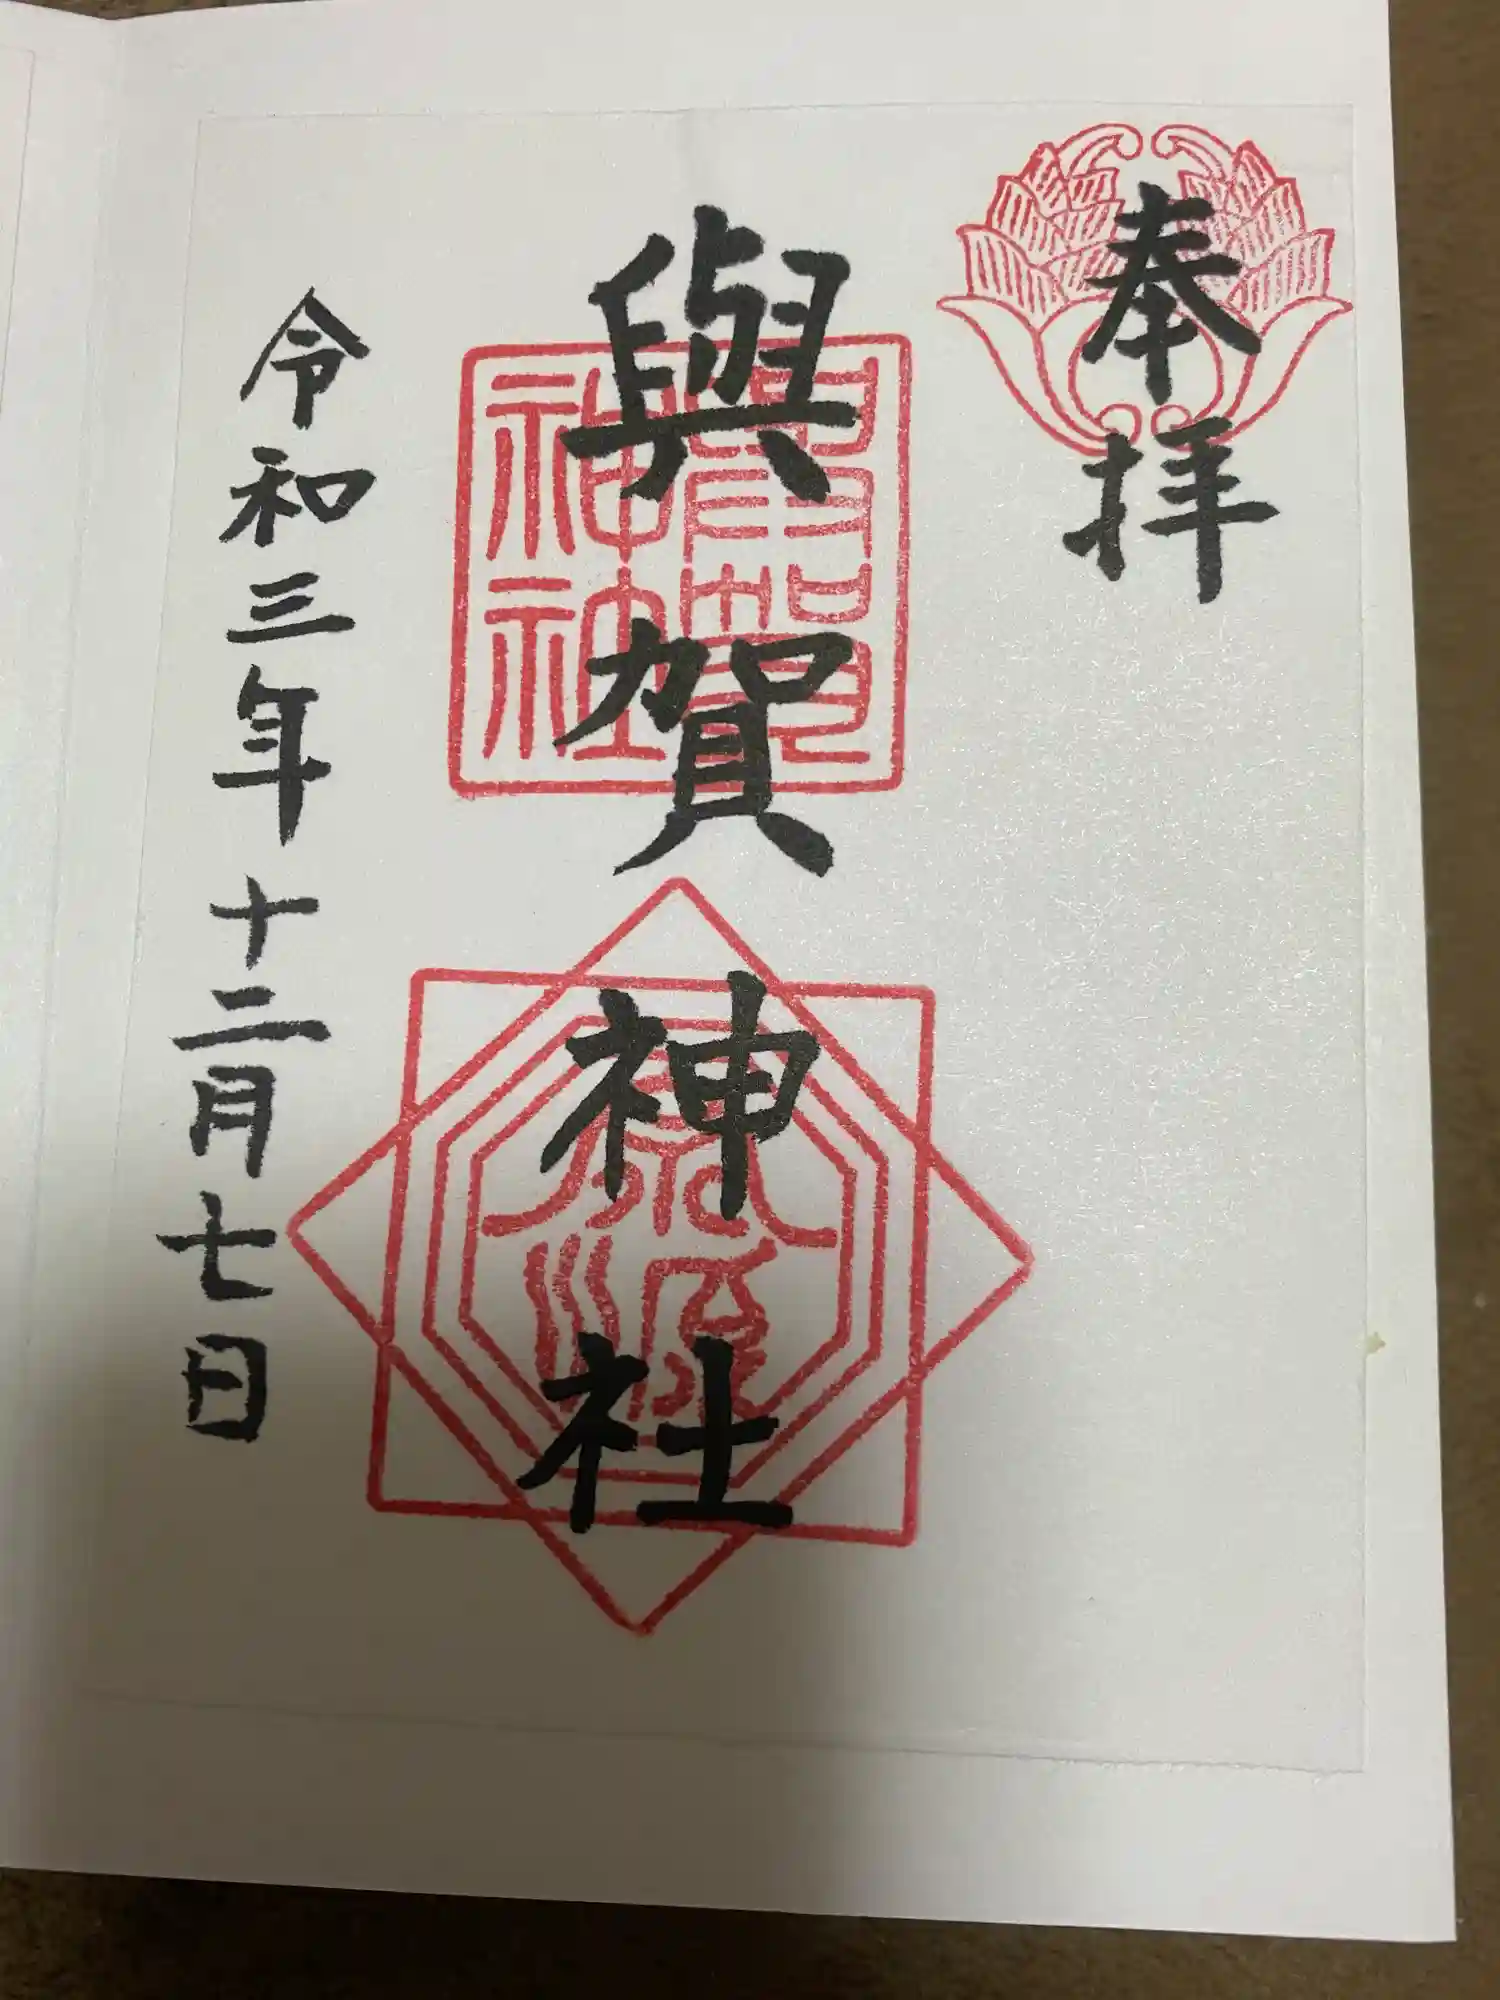 奉拝
與賀神社
與賀神社
令和三年十二月七日